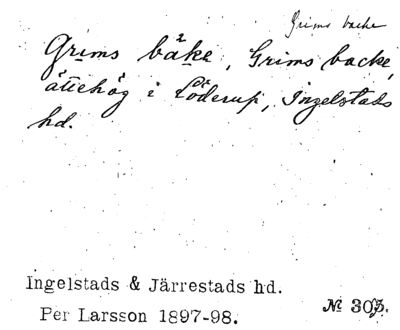 Grims backe
Grims båke, Grims backe,
ättehög i Löderup, Ingelstads
hd.
Ingelstads & Järrestads hd.
Per Larsson 1897-98.
№ 303.